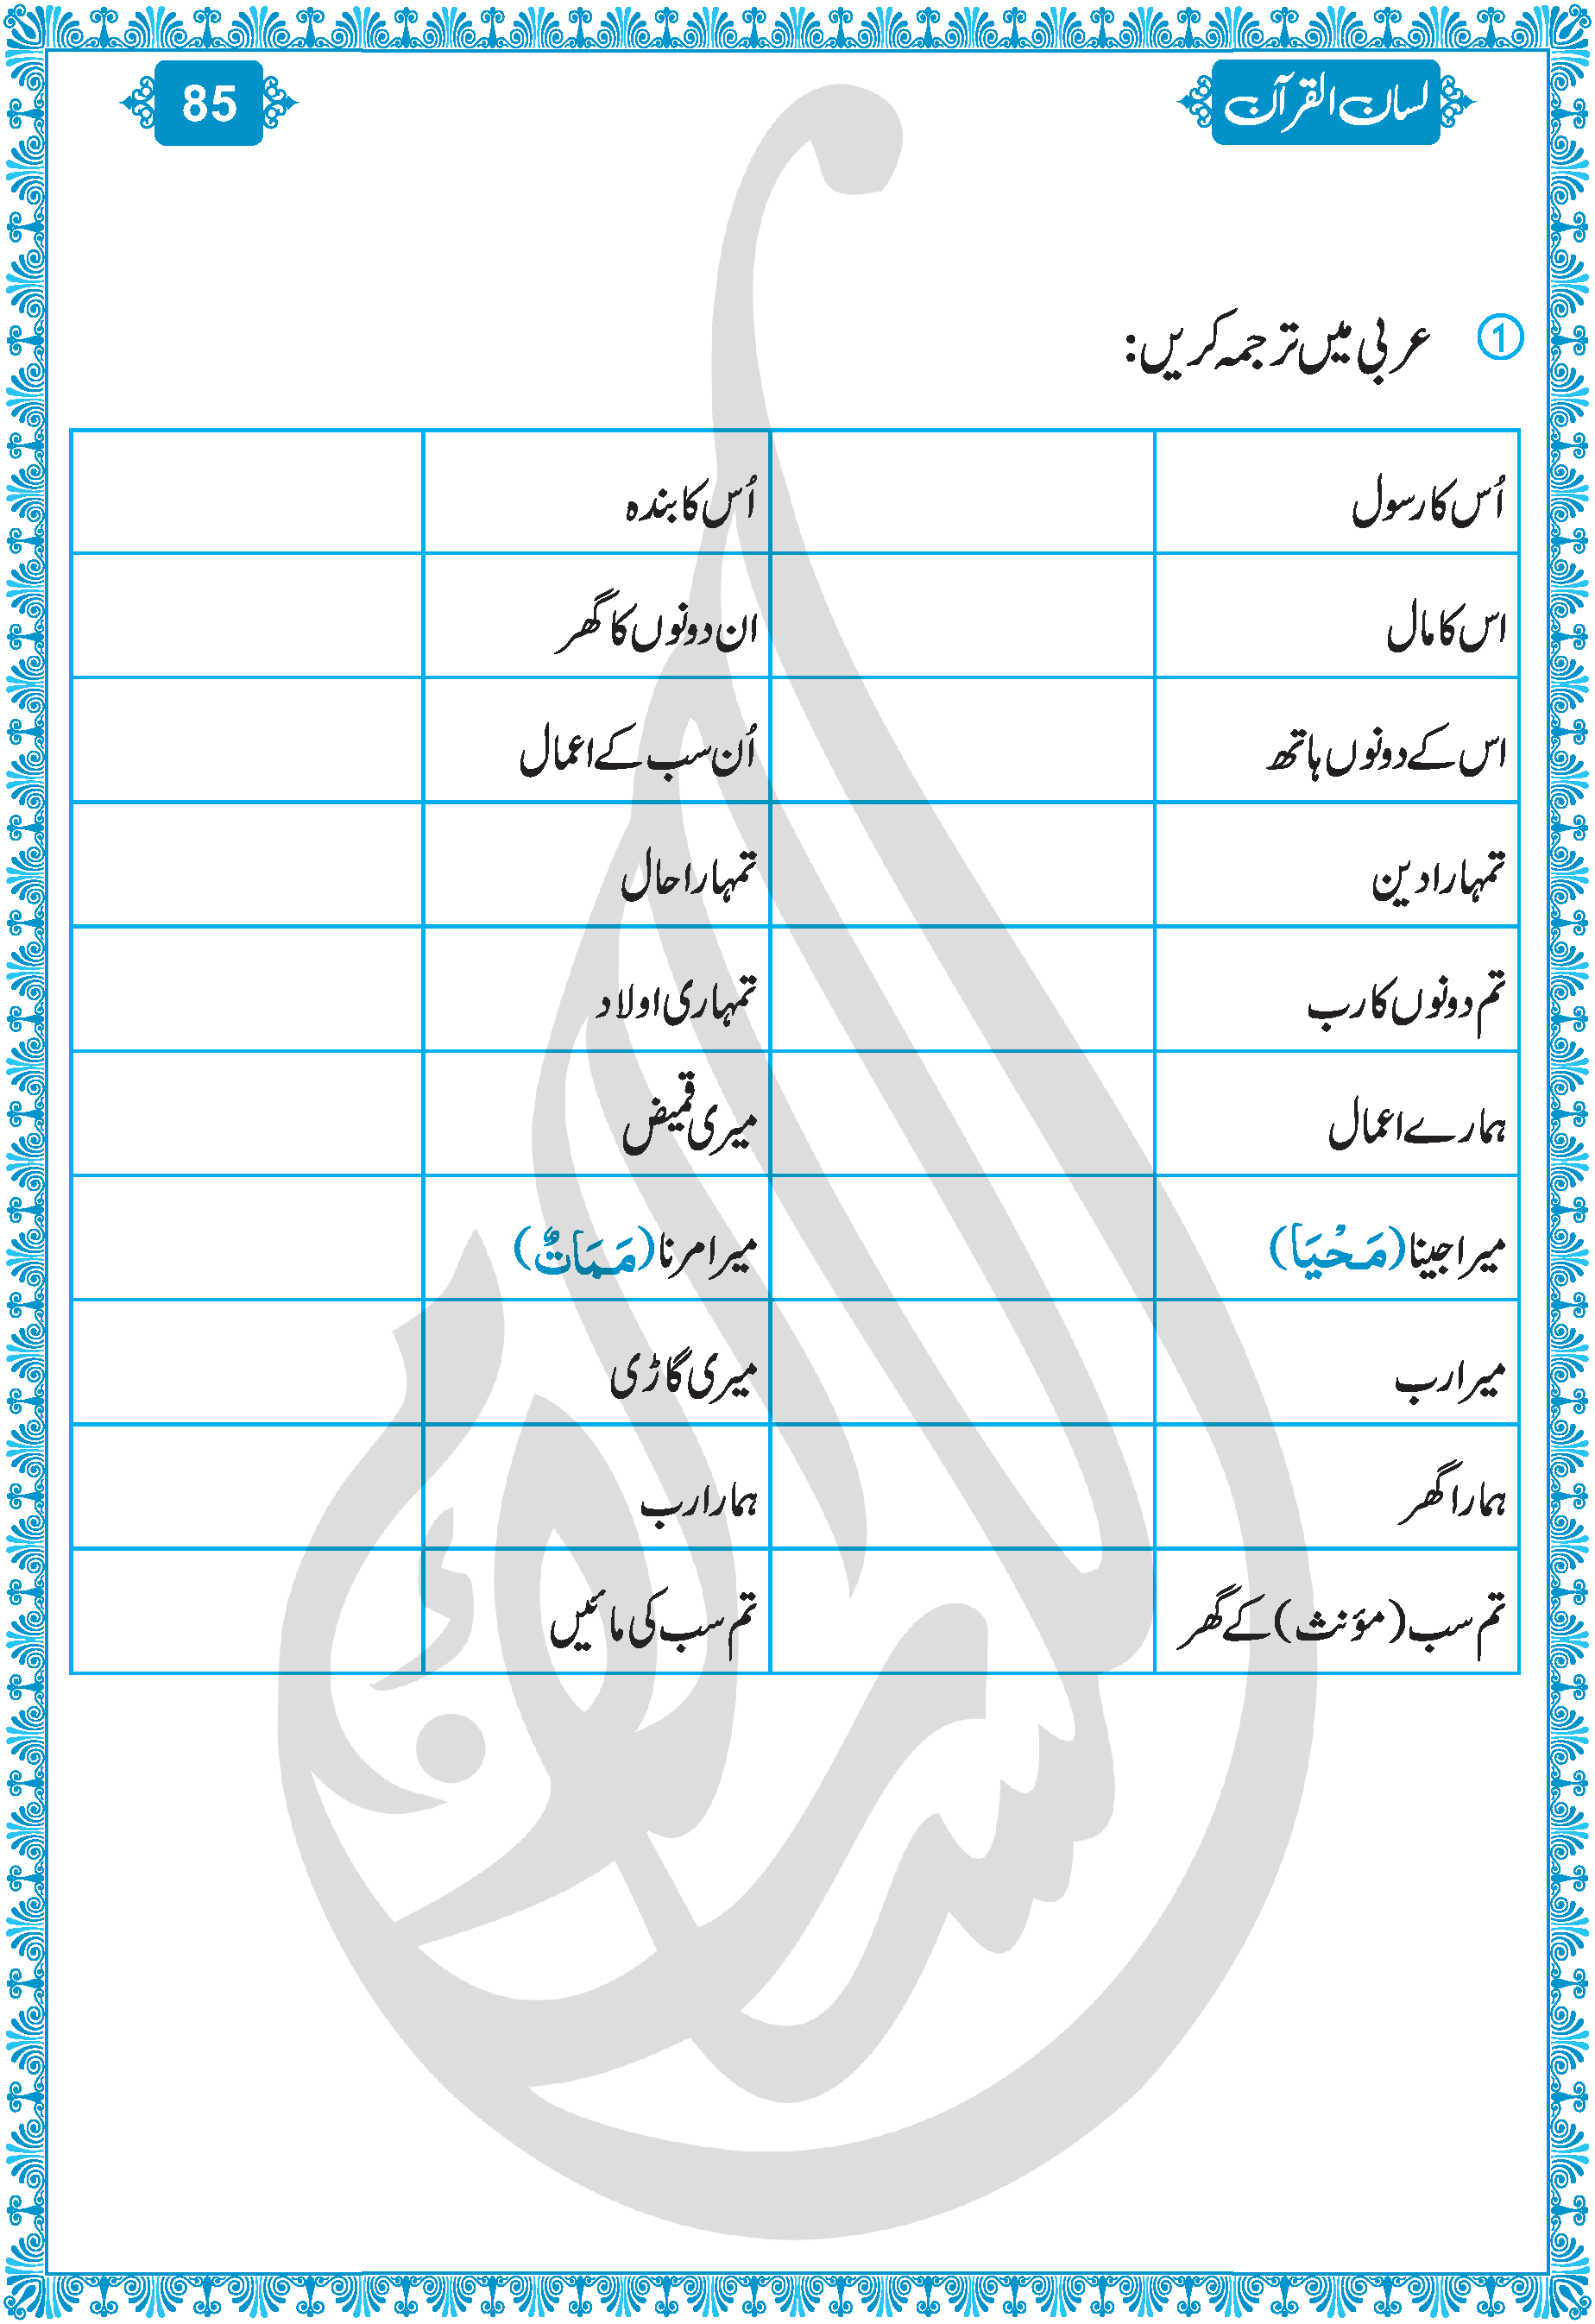 لسان القرآن
85
① عربی میں ترجمہ کریں:
اُس کا رسول اُس کا بندہ
اس کا مال ان دونوں کا گھر
اس کے دونوں ہاتھ اُن سب کے اعمال
تمہارا دین تمہارا حال
تم دونوں کا رب تمہاری اولاد
ہمارے اعمال میری قمیض
میرا جینا (مَحْيَا) میرا مرنا (مَمَاتٌ)
میرا رب میری گاڑی
ہمارا گھر ہمارا رب
تم سب (مؤنث) کے گھر تم سب کی مائیں